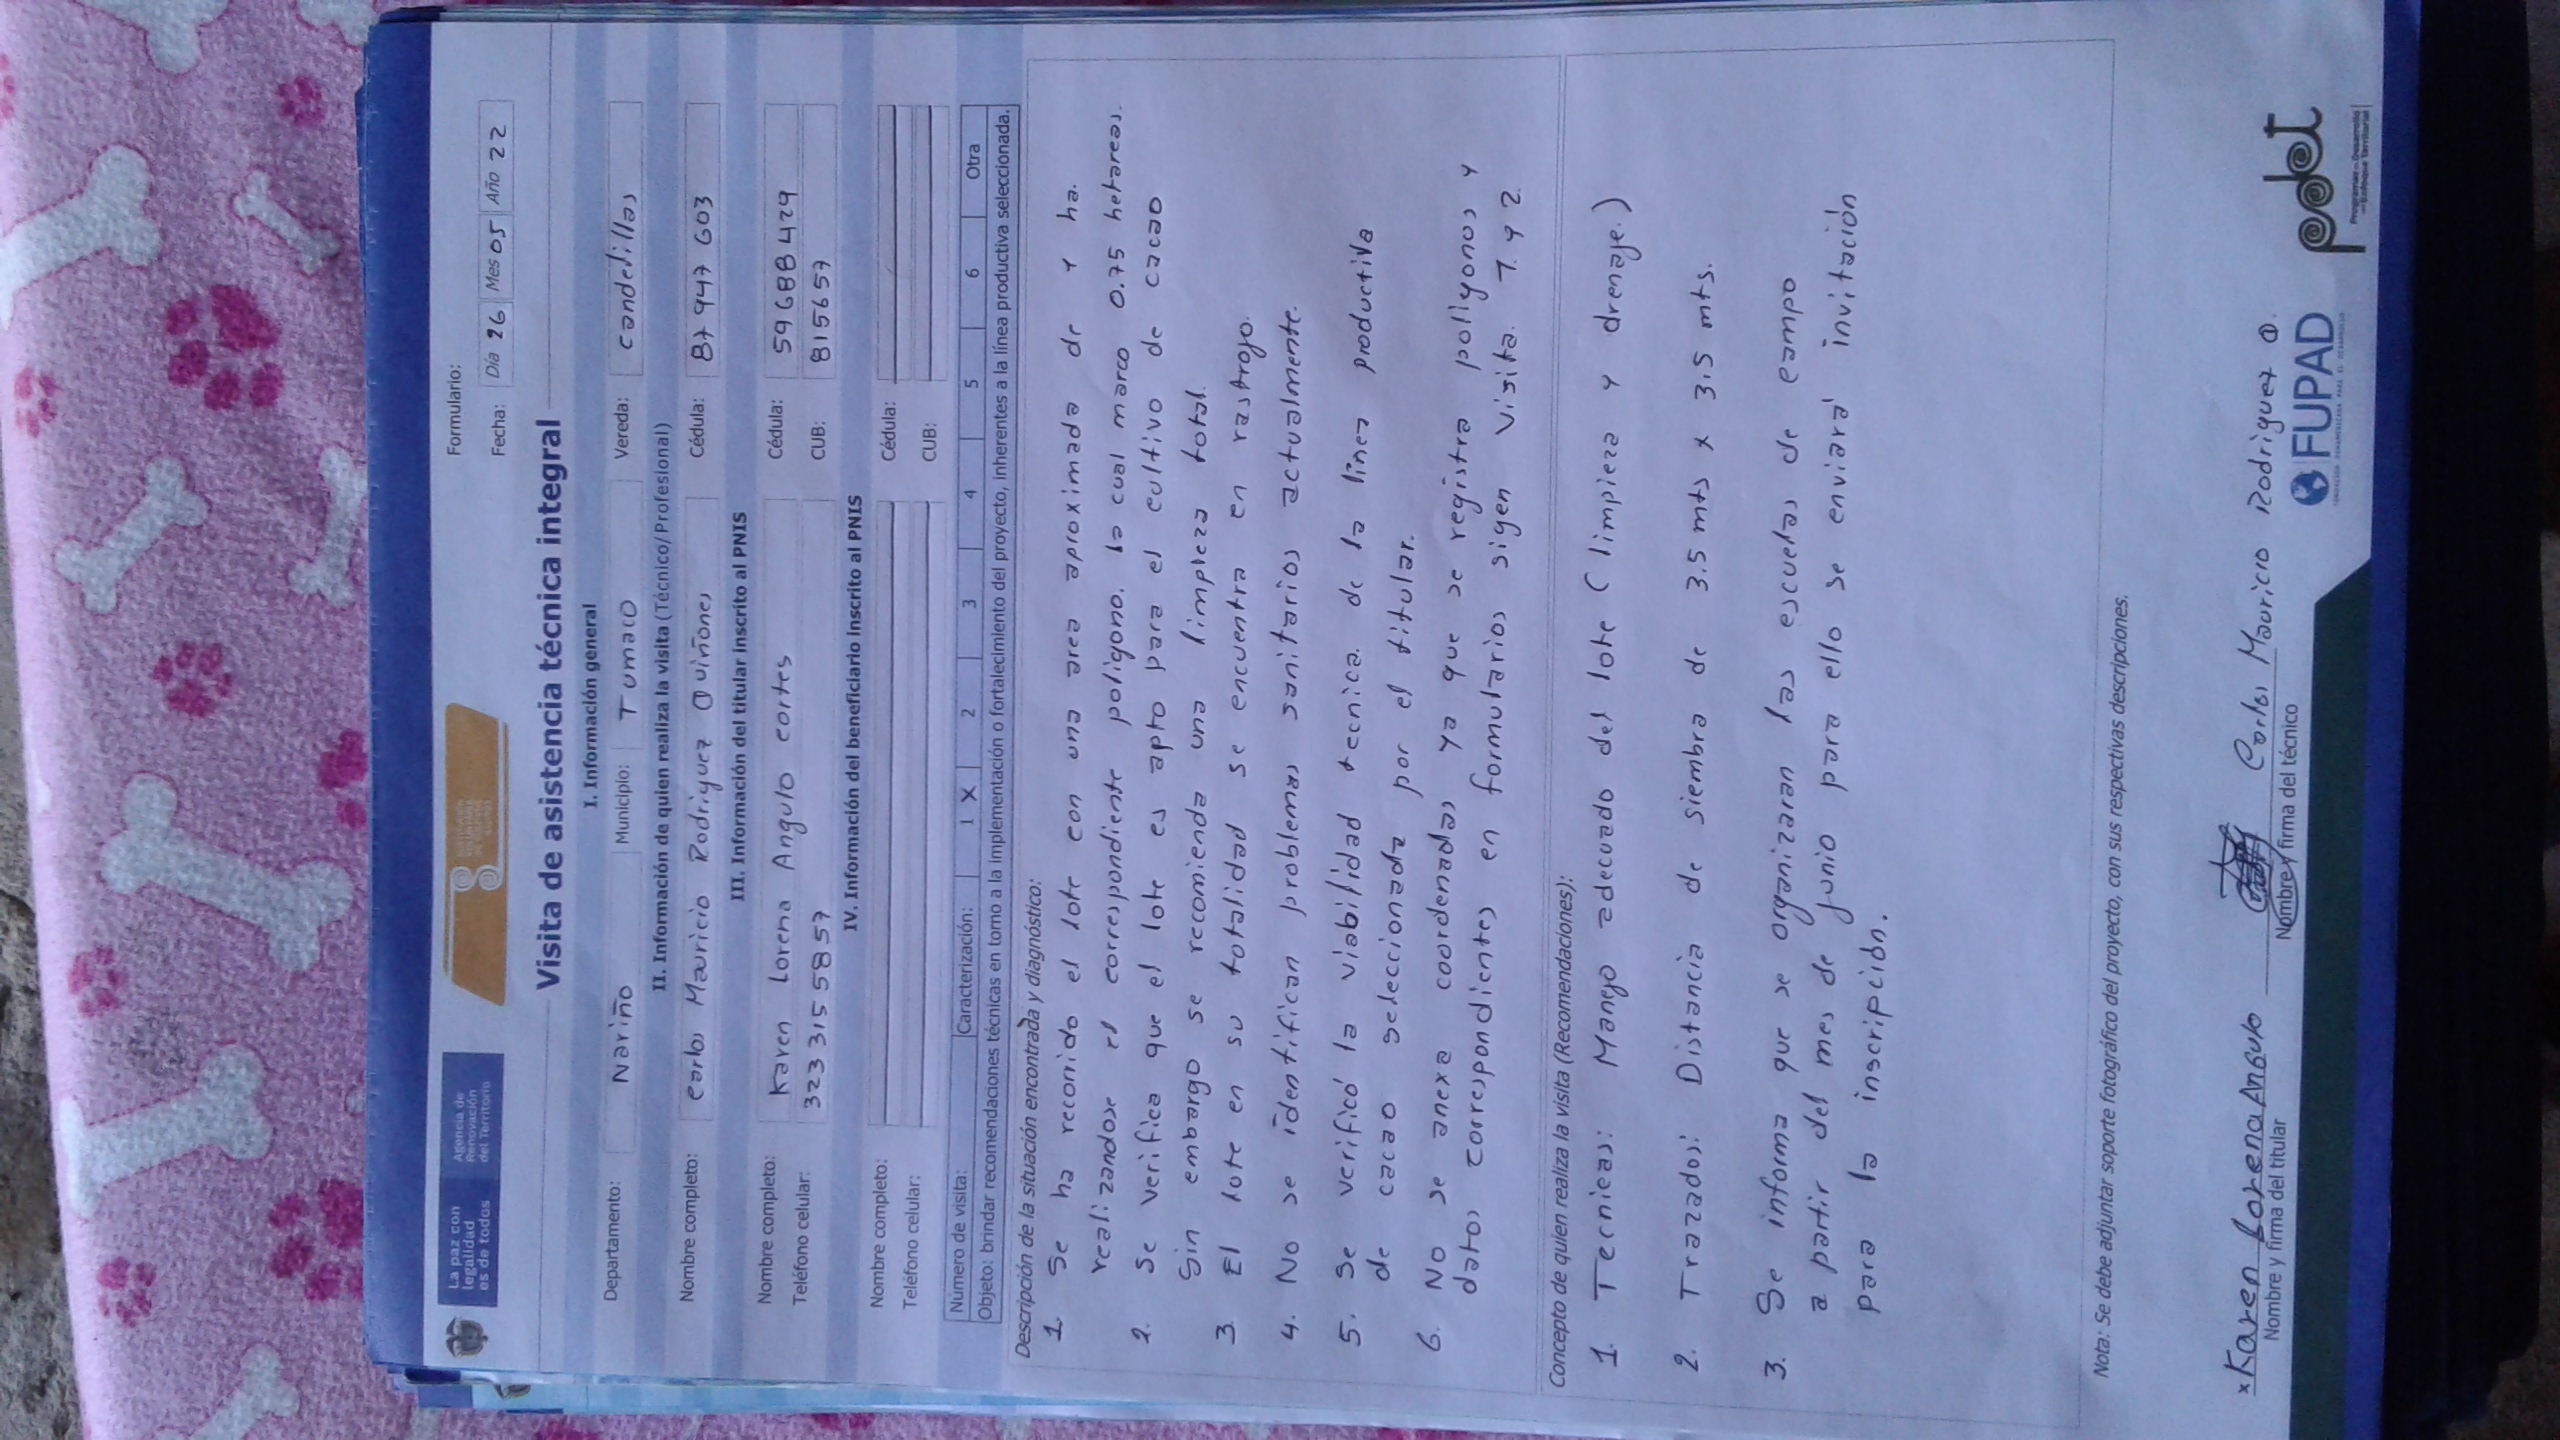 La paz con
legalidad
es de todos
Agencia de
Renovación
del Territorio
Formulario:
Fecha: Día 26 Mes 05 Año 22
Visita de asistencia técnica integral
I. Información general
Departamento: Nariño Municipio: Tumaco Vereda: candelillas
II. Información de quien realiza la visita (Técnico/Profesional)
Nombre completo: carlos Mauricio Rodriguez Quiñones Cédula: 87 947 603
III. Información del titular inscrito al PNIS
Nombre completo: Karen Lorena Angulo cortes Cédula: 59688429
Teléfono celular: 323 315 5857 CUB: 815657
IV. Información del beneficiario inscrito al PNIS
Nombre completo: Cédula:
Teléfono celular: CUB:
Número de visita: Caracterización: 1 X 2 3 4 5 6 Otra
Objeto: brindar recomendaciones técnicas en torno a la implementación o fortalecimiento del proyecto, inherentes a la línea productiva seleccionada.
Descripción de la situación encontrada y diagnóstico:
1. Se ha recorrido el lote con una area aproximada de ha.
realizandose el correspondiente poligono. la cual marco 0.75 hetareas.
2. Se verifica que el lote es apto para el cultivo de cacao
Sin embargo se recomienda una limpieza total.
3. El lote en su totalidad se encuentra en rastrojo.
4. No se identifican problemas sanitarios actualmente.
5. Se verificó la viabilidad tecnica de la linea productiva
de cacao seleccionada por el titular.
6. No se anexa coordenadas ya que se registra poligonos y
datos correspondientes en formularios sigen visita 1 y 2
Concepto de quien realiza la visita (Recomendaciones):
1. Tecnicas: Manejo adecuado del lote (limpieza y drenaje.)
2. Trazados: Distancia de siembra de 3.5 mts x 3.5 mts.
3. Se informa que se organizaran las escuelas de campo
a partir del mes de junio para ello se enviará invitación
para la inscripción.
Nota: Se debe adjuntar soporte fotográfico del proyecto, con sus respectivas descripciones.
x Karen Lorena Angulo
Nombre y firma del titular
Carlos Mauricio Rodriguez Q.
Nombre y firma del técnico
FUPAD
pdet
Programas de Desarrollo
con Enfoque Territorial